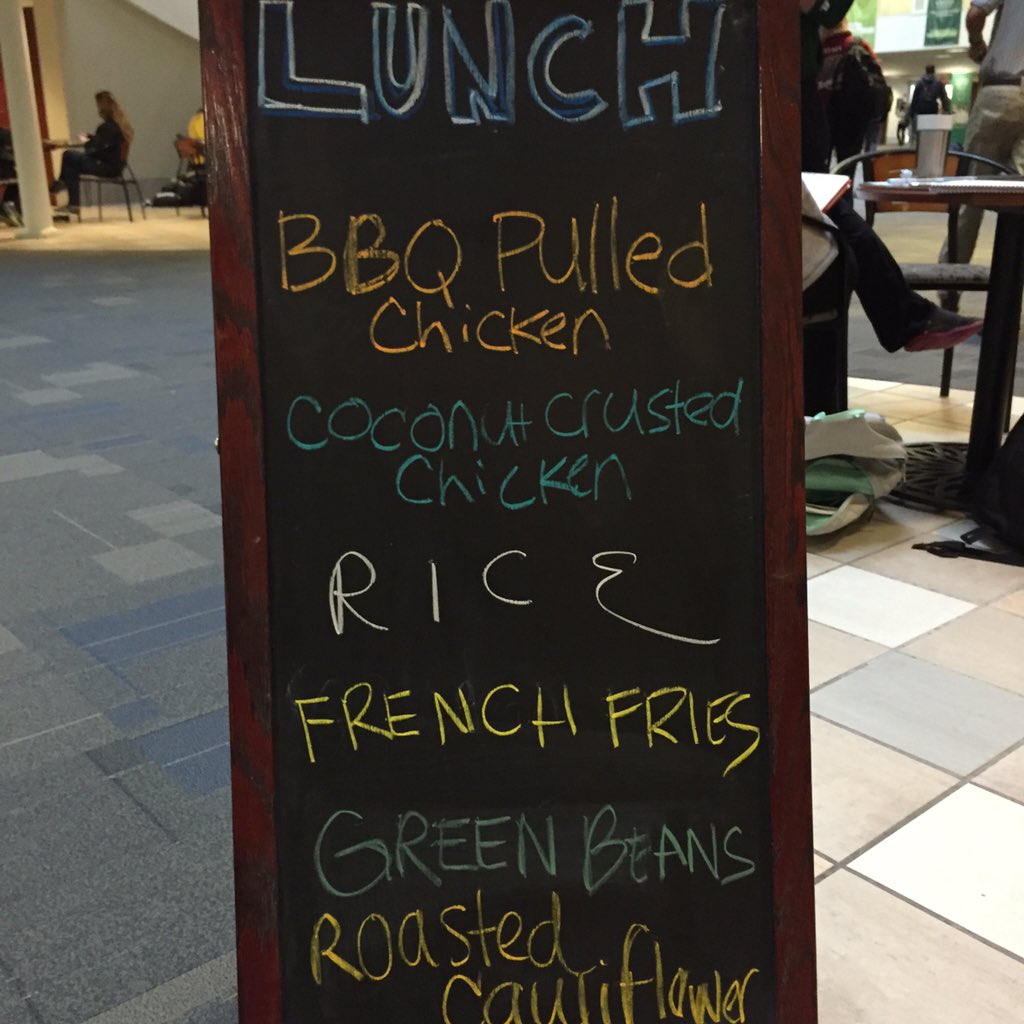 LUNCH
BBQ Pulled
Chicken
Coconut Crusted
Chicken
RICE
FRENCH FRIES
GREEN BEANS
Roasted
Cauliflower